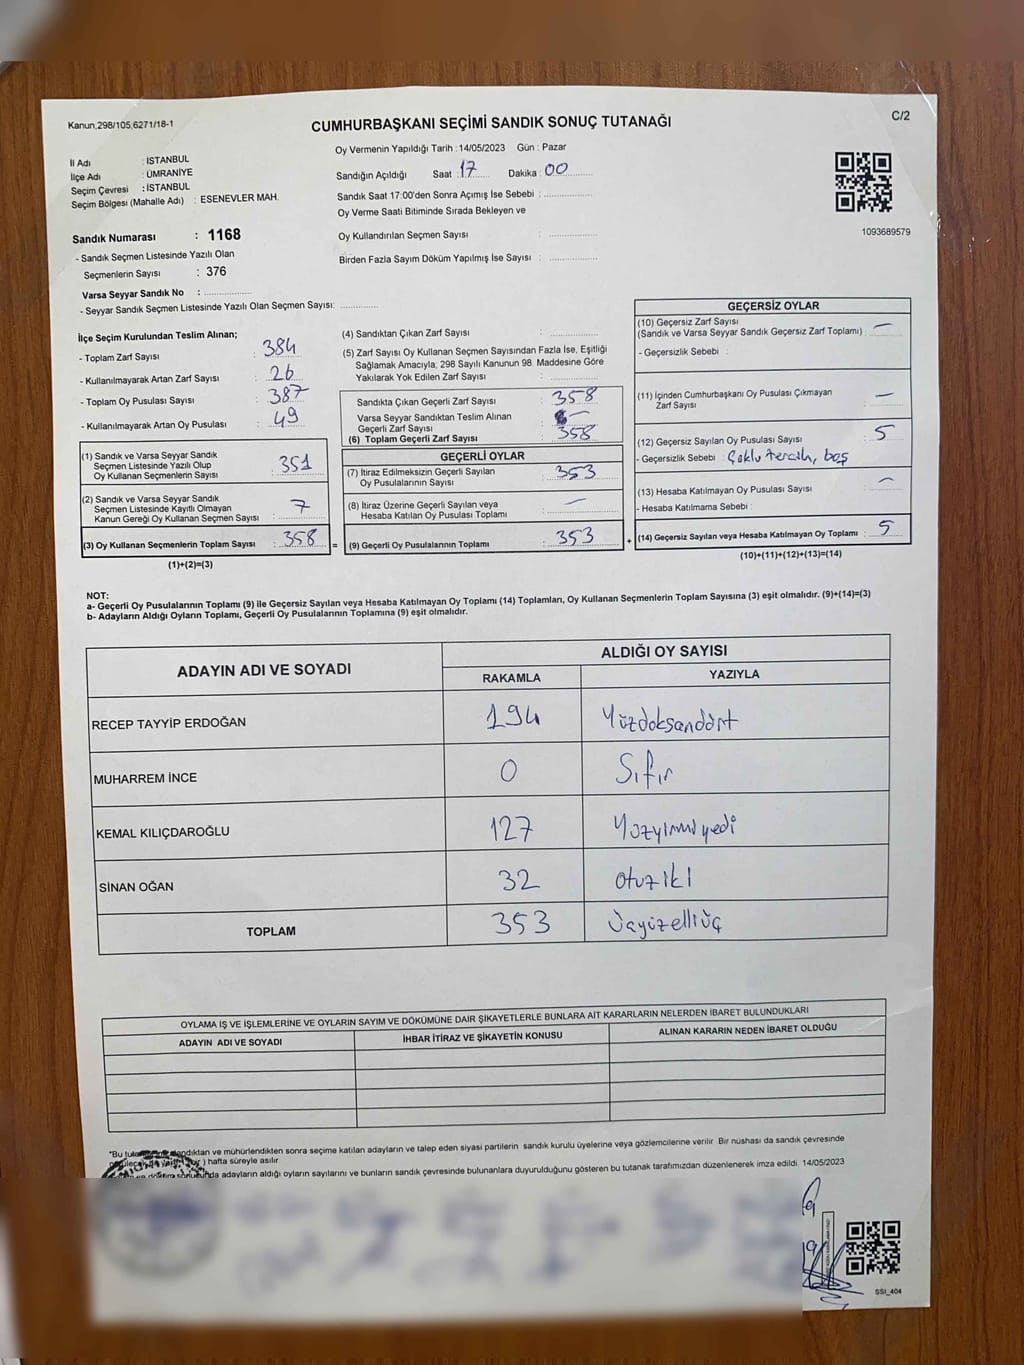 Kanun,298/105,6271/18-1
C/2
CUMHURBAŞKANI SEÇİMİ SANDIK SONUÇ TUTANAĞI
İl Adı : İSTANBUL
İlçe Adı : ÜMRANİYE
Seçim Çevresi : İSTANBUL
Seçim Bölgesi (Mahalle Adı) : ESENEVLER MAH.
Sandık Numarası : 1168
- Sandık Seçmen Listesinde Yazılı Olan
Seçmenlerin Sayısı : 376
Varsa Seyyar Sandık No :
- Seyyar Sandık Seçmen Listesinde Yazılı Olan Seçmen Sayısı:
Oy Vermenin Yapıldığı Tarih : 14/05/2023 Gün : Pazar
Sandığın Açıldığı Saat : 17 Dakika : 00
Sandık Saat 17:00'den Sonra Açımış İse Sebebi :
Oy Verme Saati Bitiminde Sırada Bekleyen ve
Oy Kullandırılan Seçmen Sayısı :
Birden Fazla Sayım Döküm Yapılmış İse Sayısı :
1093689579
İlçe Seçim Kurulundan Teslim Alınan;
- Toplam Zarf Sayısı : 384
- Kullanılmayarak Artan Zarf Sayısı : 26
- Toplam Oy Pusulası Sayısı : 387
- Kullanılmayarak Artan Oy Pusulası : 49
(1) Sandık ve Varsa Seyyar Sandık
Seçmen Listesinde Yazılı Olup
Oy Kullanan Seçmenlerin Sayısı : 351
(2) Sandık ve Varsa Seyyar Sandık
Seçmen Listesinde Kayıtlı Olmayan
Kanun Gereği Oy Kullanan Seçmen Sayısı : 7
(3) Oy Kullanan Seçmenlerin Toplam Sayısı : 358
(1)+(2)=(3)
(4) Sandıktan Çıkan Zarf Sayısı :
(5) Zarf Sayısı Oy Kullanan Seçmen Sayısından Fazla İse, Eşitliği
Sağlamak Amacıyla; 298 Sayılı Kanunun 98. Maddesine Göre
Yakılarak Yok Edilen Zarf Sayısı :
Sandıkta Çıkan Geçerli Zarf Sayısı : 358
Varsa Seyyar Sandıktan Teslim Alınan
Geçerli Zarf Sayısı : -
(6) Toplam Geçerli Zarf Sayısı : 358
GEÇERLİ OYLAR
(7) İtiraz Edilmeksizin Geçerli Sayılan
Oy Pusulalarının Sayısı : 353
(8) İtiraz Üzerine Geçerli Sayılan veya
Hesaba Katılan Oy Pusulası Toplamı : -
= (9) Geçerli Oy Pusulalarının Toplamı : 353
GEÇERSİZ OYLAR
(10) Geçersiz Zarf Sayısı
(Sandık ve Varsa Seyyar Sandık Geçersiz Zarf Toplamı) : -
- Geçersizlik Sebebi :
(11) İçinden Cumhurbaşkanı Oy Pusulası Çıkmayan
Zarf Sayısı : -
(12) Geçersiz Sayılan Oy Pusulası Sayısı : 5
- Geçersizlik Sebebi : Çoklu tercih, boş
(13) Hesaba Katılmayan Oy Pusulası Sayısı : -
- Hesaba Katılmama Sebebi :
+ (14) Geçersiz Sayılan veya Hesaba Katılmayan Oy Toplamı : 5
(10)+(11)+(12)+(13)=(14)
NOT:
a- Geçerli Oy Pusulalarının Toplamı (9) ile Geçersiz Sayılan veya Hesaba Katılmayan Oy Toplamı (14) Toplamları, Oy Kullanan Seçmenlerin Toplam Sayısına (3) eşit olmalıdır. (9)+(14)=(3)
b- Adayların Aldığı Oyların Toplamı, Geçerli Oy Pusulalarının Toplamına (9) eşit olmalıdır.
ADAYIN ADI VE SOYADI
ALDIĞI OY SAYISI
RAKAMLA YAZIYLA
RECEP TAYYİP ERDOĞAN 194 Yüzdoksandört
MUHARREM İNCE 0 Sıfır
KEMAL KILIÇDAROĞLU 127 Yüzyirmiyedi
SİNAN OĞAN 32 otuziki
TOPLAM 353 Üçyüzelliüç
OYLAMA İŞ VE İŞLEMLERİNE VE OYLARIN SAYIM VE DÖKÜMÜNE DAİR ŞİKAYETLERLE BUNLARA AİT KARARLARIN NELERDEN İBARET BULUNDUKLARI
ADAYIN ADI VE SOYADI İHBAR İTİRAZ VE ŞİKAYETİN KONUSU ALINAN KARARIN NEDEN İBARET OLDUĞU
"Bu andıktan ve mühürlendikten sonra seçime katılan adayların ve talep eden siyasi partilerin sandık kurulu üyelerine veya gözlemcilerine verilir. Bir nüshası da sandık çevresinde
) hafta süreyle asılır.
adayların aldığı oyların sayılarını ve bunların sandık çevresinde bulunanlara duyurulduğunu gösteren bu tutanak tarafımızdan düzenlenerek imza edildi. 14/05/2023
SSI_404